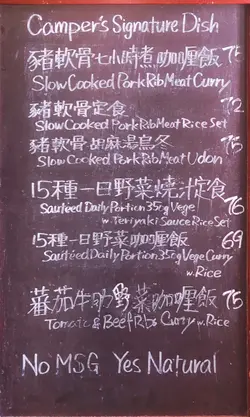 Camper's Signature Dish
豬軟骨七小時煮咖喱飯 75
Slow Cooked Pork Rib Meat Curry
豬軟骨定食 72
Slow Cooked Pork Rib Meat Rice Set
豬軟骨胡麻湯烏冬 75
Slow Cooked Pork Rib Meat Udon
15種一日野菜燒汁定食 76
Sautéed Daily Portion 350g Vege
w. Teriyaki Sauce Rice Set
15種一日野菜咖喱飯 69
Sautéed Daily Portion 350g Vege Curry
w. Rice
蕃茄牛肋野菜咖喱飯 75
Tomato & Beef Rib Curry w. Rice
No MSG Yes Natural